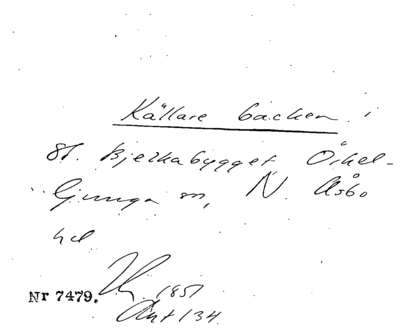 Källare backen i
St. Bjerkabygget Örkel-
ljunga sn, N. Åsbo
hd
Nr 7479. 1851
Akt 134